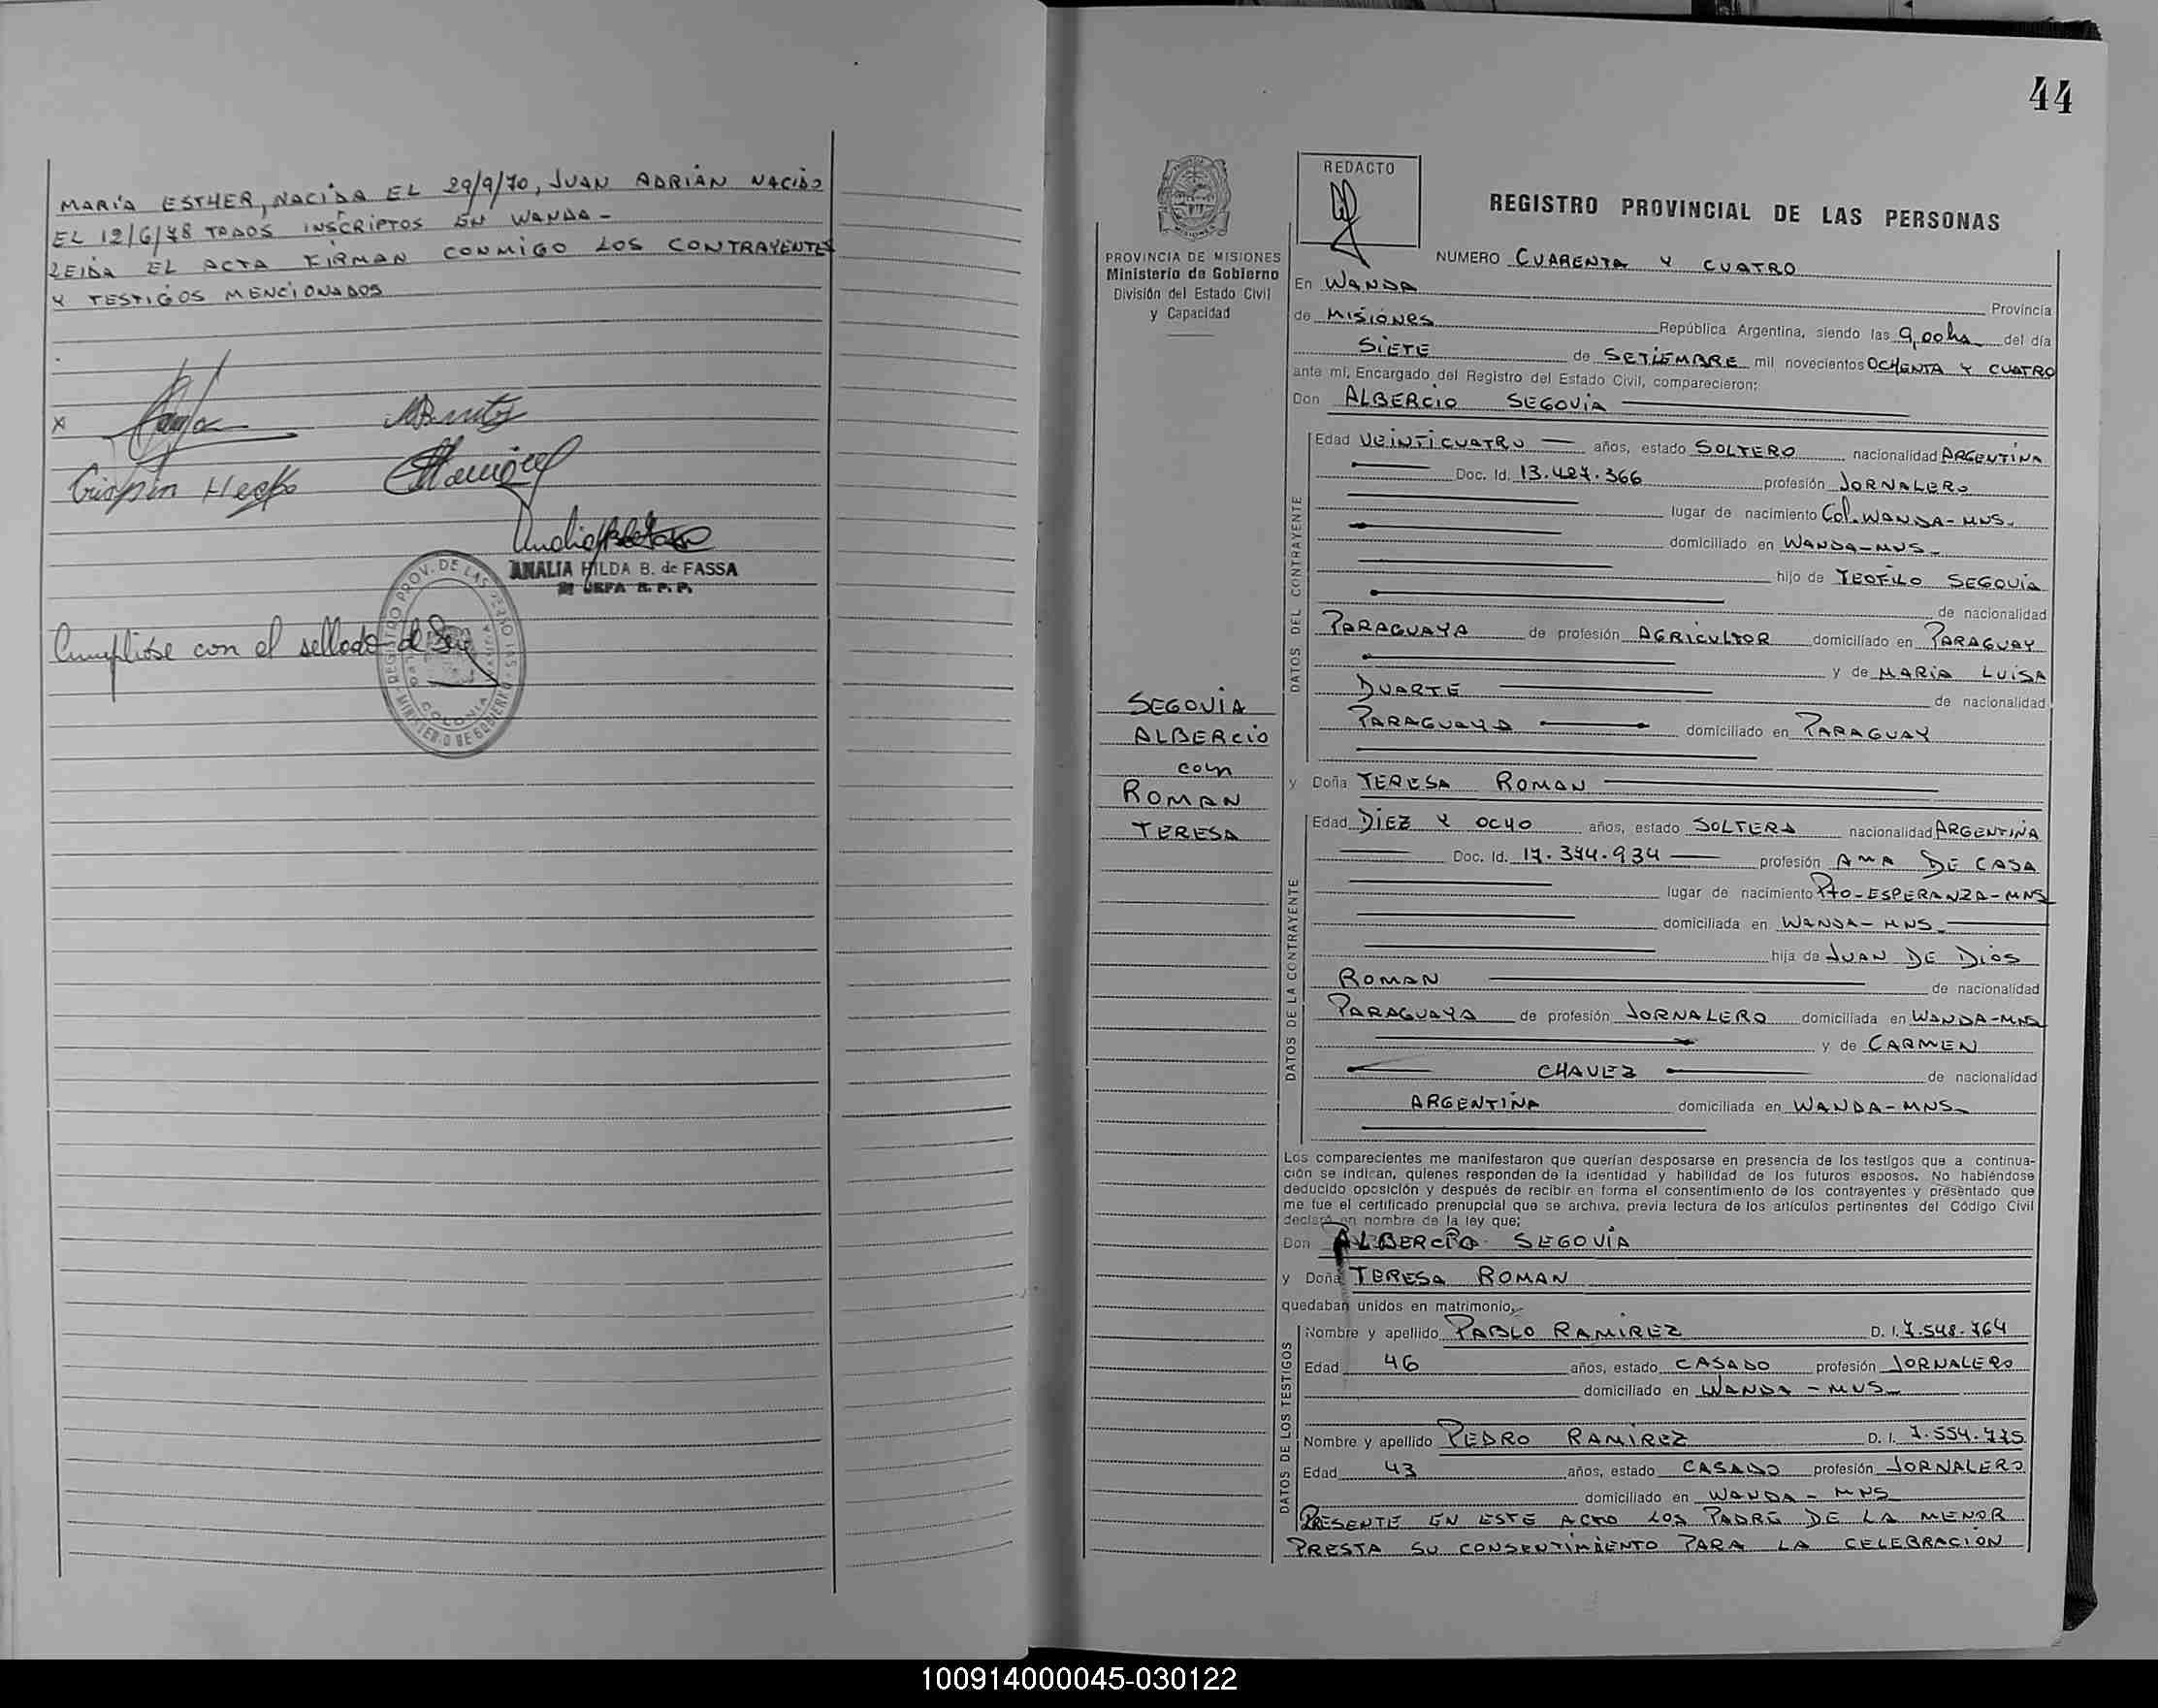 MARIA ESTHER, NACIDA EL 29/9/70, JUAN ADRIAN NACIDO
EL 12/6/78 TODOS INSCRIPTOS EN WANDA-
LEIDA EL ACTA FIRMAN CONMIGO LOS CONTRAYENTES
Y TESTIGOS MENCIONADOS
x
Crispin
ANALIA HILDA B. de FASSA
JEFA R. P. P.
Cumpliose con el sellado de
44
REDACTO
REGISTRO PROVINCIAL DE LAS PERSONAS
PROVINCIA DE MISIONES
Ministerio de Gobierno
División del Estado Civil
y Capacidad
NUMERO CUARENTA Y CUATRO
En WANDA Provincia
de MISIONES República Argentina, siendo las 9,00hs del día
SIETE de SETIEMBRE mil novecientos OCHENTA Y CUATRO
ante mí, Encargado del Registro del Estado Civil, comparecieron:
Don ALBERCIO SEGOVIA
DATOS DEL CONTRAYENTE
Edad VEINTICUATRO años, estado SOLTERO nacionalidad ARGENTINA
Doc. Id. 13.427.366 profesión JORNALERO
lugar de nacimiento Col. WANDA-MNS-
domiciliado en WANDA-MNS-
hijo de TEOFILO SEGOVIA
de nacionalidad
PARAGUAYA de profesión AGRICULTOR domiciliado en PARAGUAY
y de MARIA LUISA
DUARTE de nacionalidad
PARAGUAYA domiciliado en PARAGUAY
SEGOVIA
ALBERCIO
con
ROMAN
TERESA
y Doña TERESA ROMAN
DATOS DE LA CONTRAYENTE
Edad DIEZ Y OCHO años, estado SOLTERA nacionalidad ARGENTINA
Doc. Id. 17.374.934 profesión AMA DE CASA
lugar de nacimiento Pto-ESPERANZA-MNS
domiciliada en WANDA-MNS-
hija de JUAN DE DIOS
ROMAN de nacionalidad
PARAGUAYA de profesión JORNALERO domiciliada en WANDA-MNS
y de CARMEN
CHAVEZ de nacionalidad
ARGENTINA domiciliada en WANDA-MNS-
Los comparecientes me manifestaron que querían desposarse en presencia de los testigos que a continua-
ción se indican, quienes responden de la identidad y habilidad de los futuros esposos. No habiéndose
deducido oposición y después de recibir en forma el consentimiento de los contrayentes y presentado que
me fue el certificado prenupcial que se archiva, previa lectura de los artículos pertinentes del Código Civil
declaré en nombre de la ley que:
Don ALBERCIO SEGOVIA
y Doña TERESA ROMAN
quedaban unidos en matrimonio,
DATOS DE LOS TESTIGOS
Nombre y apellido PABLO RAMIREZ D. I. 7.548.764
Edad 46 años, estado CASADO profesión JORNALERO
domiciliado en WANDA-MNS
Nombre y apellido PEDRO RAMIREZ D. I. 7.554.775
Edad 43 años, estado CASADO profesión JORNALERO
domiciliado en WANDA-MNS
PRESENTE EN ESTE ACTO LOS PADRE DE LA MENOR
PRESTA SU CONSENTIMIENTO PARA LA CELEBRACION
100914000045-030122